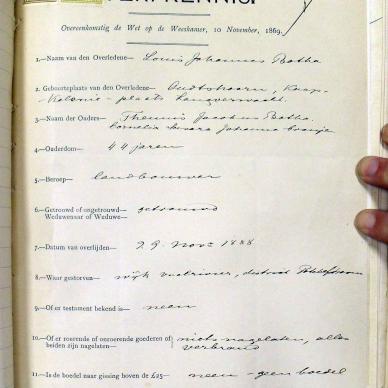 Overeenkomstig de Wet op de Weeskamer, 10 November, 1869.
1.—Naam van den Overledene— Louis Johannes Botha
2. Geboorteplaats van den Overledene— Oudtshoorn, Kaap-
Kolonie - plaats
3.—Naam der Ouders— Theunis Jacobus Botha
Cornelia Johanna
4.—Ouderdom— 44 jaren
5.—Beroep— landbouwer
6.—Getrouwd of ongetrouwd— getrouwd
Weduwenaar of Weduwe—
7.—Datum van overlijden— 29 Novr 1888
8.—Waar gestorven— wijk Vaalrivier, district Potchefstroom
9.—Of er testament bekend is— neen
10.—Of er roerende of onroerende goederen of niets nagelaten, alles
beiden zijn nagelaten— verbrand
11.—Is de boedel naar gissing boven de £25— neen - geen boedel